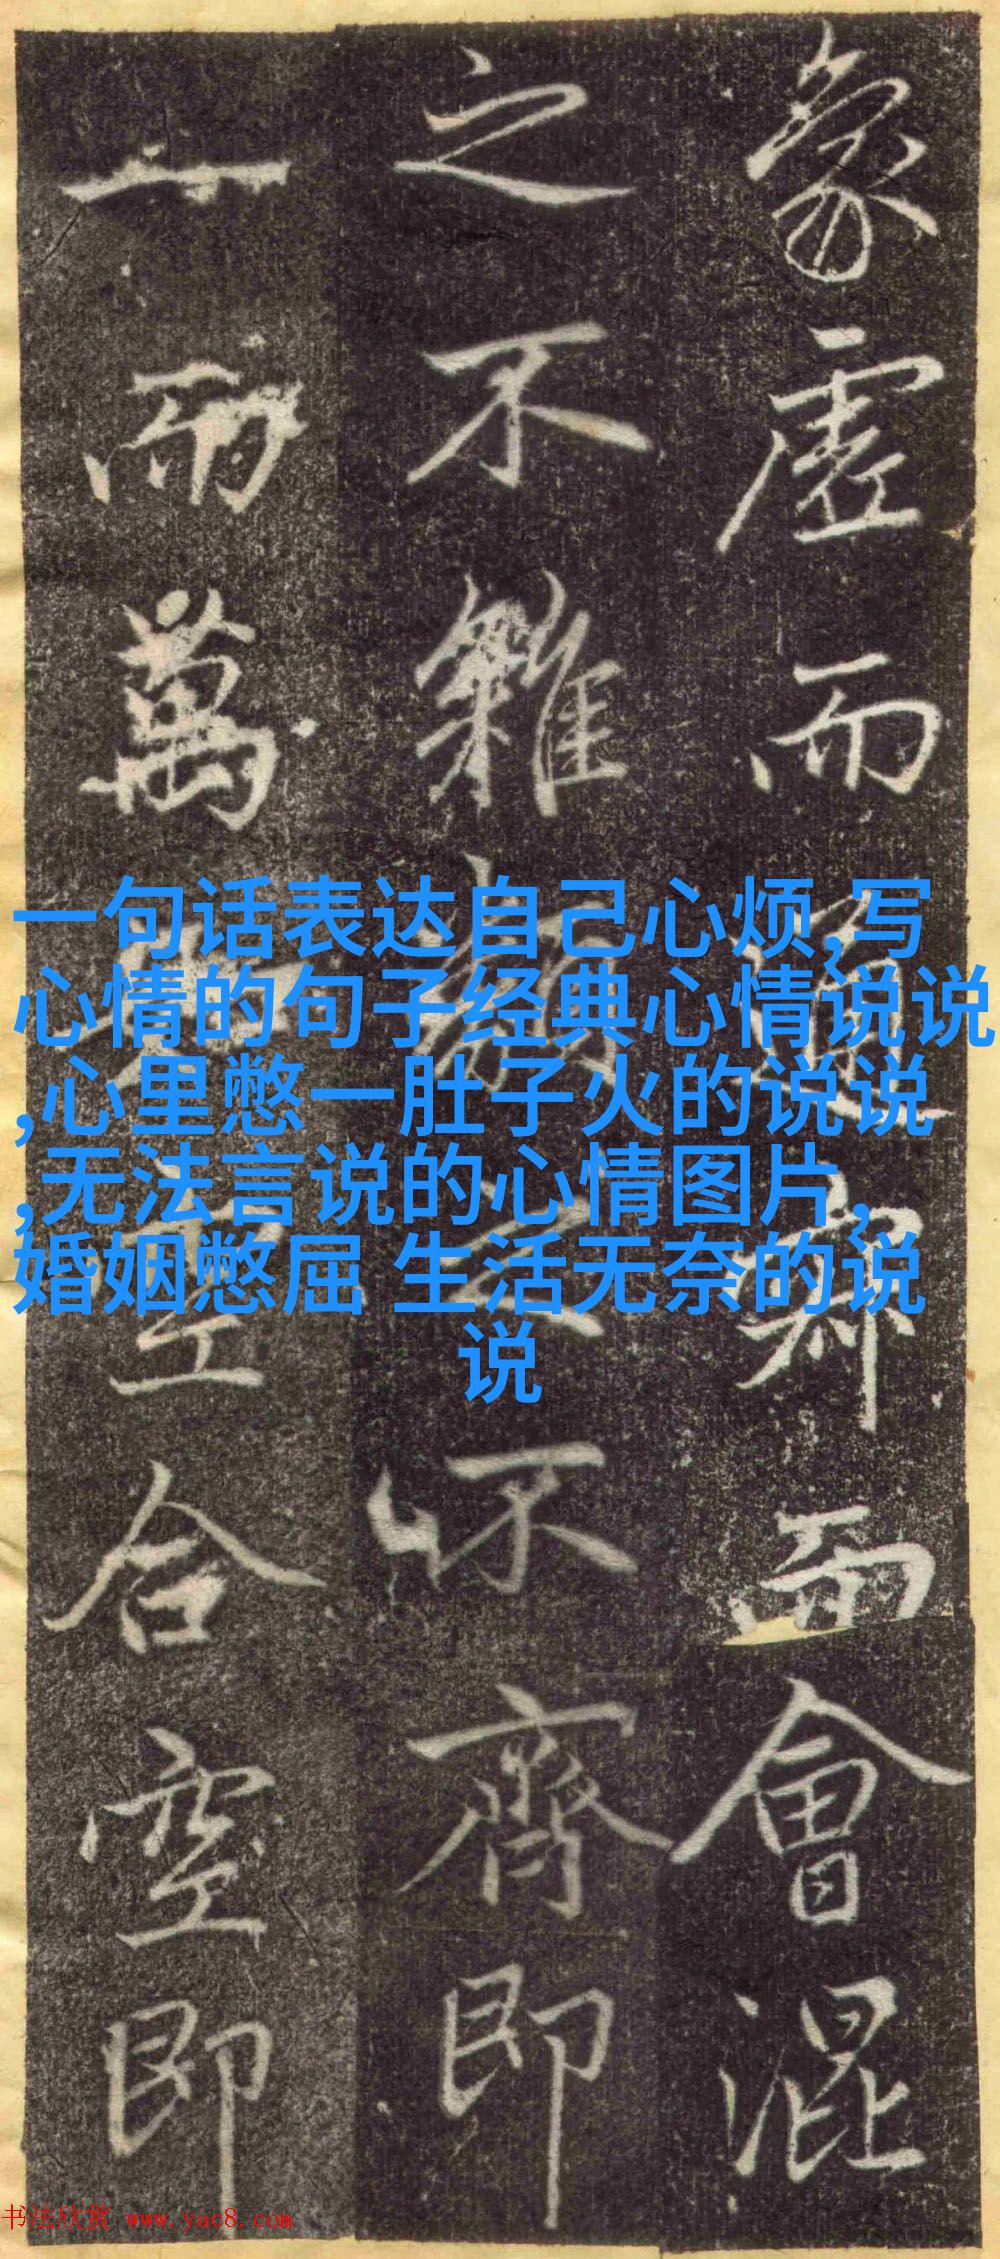 象虛而
而會混
之不雜
不齊即
一而萬
合空即
一句话表达自己心烦,写
心情的句子经典心情说说
,心里憋一肚子火的说说
,无法言说的心情图片,
婚姻憋屈 生活无奈的说
说
书法欣赏 www.yac8.com